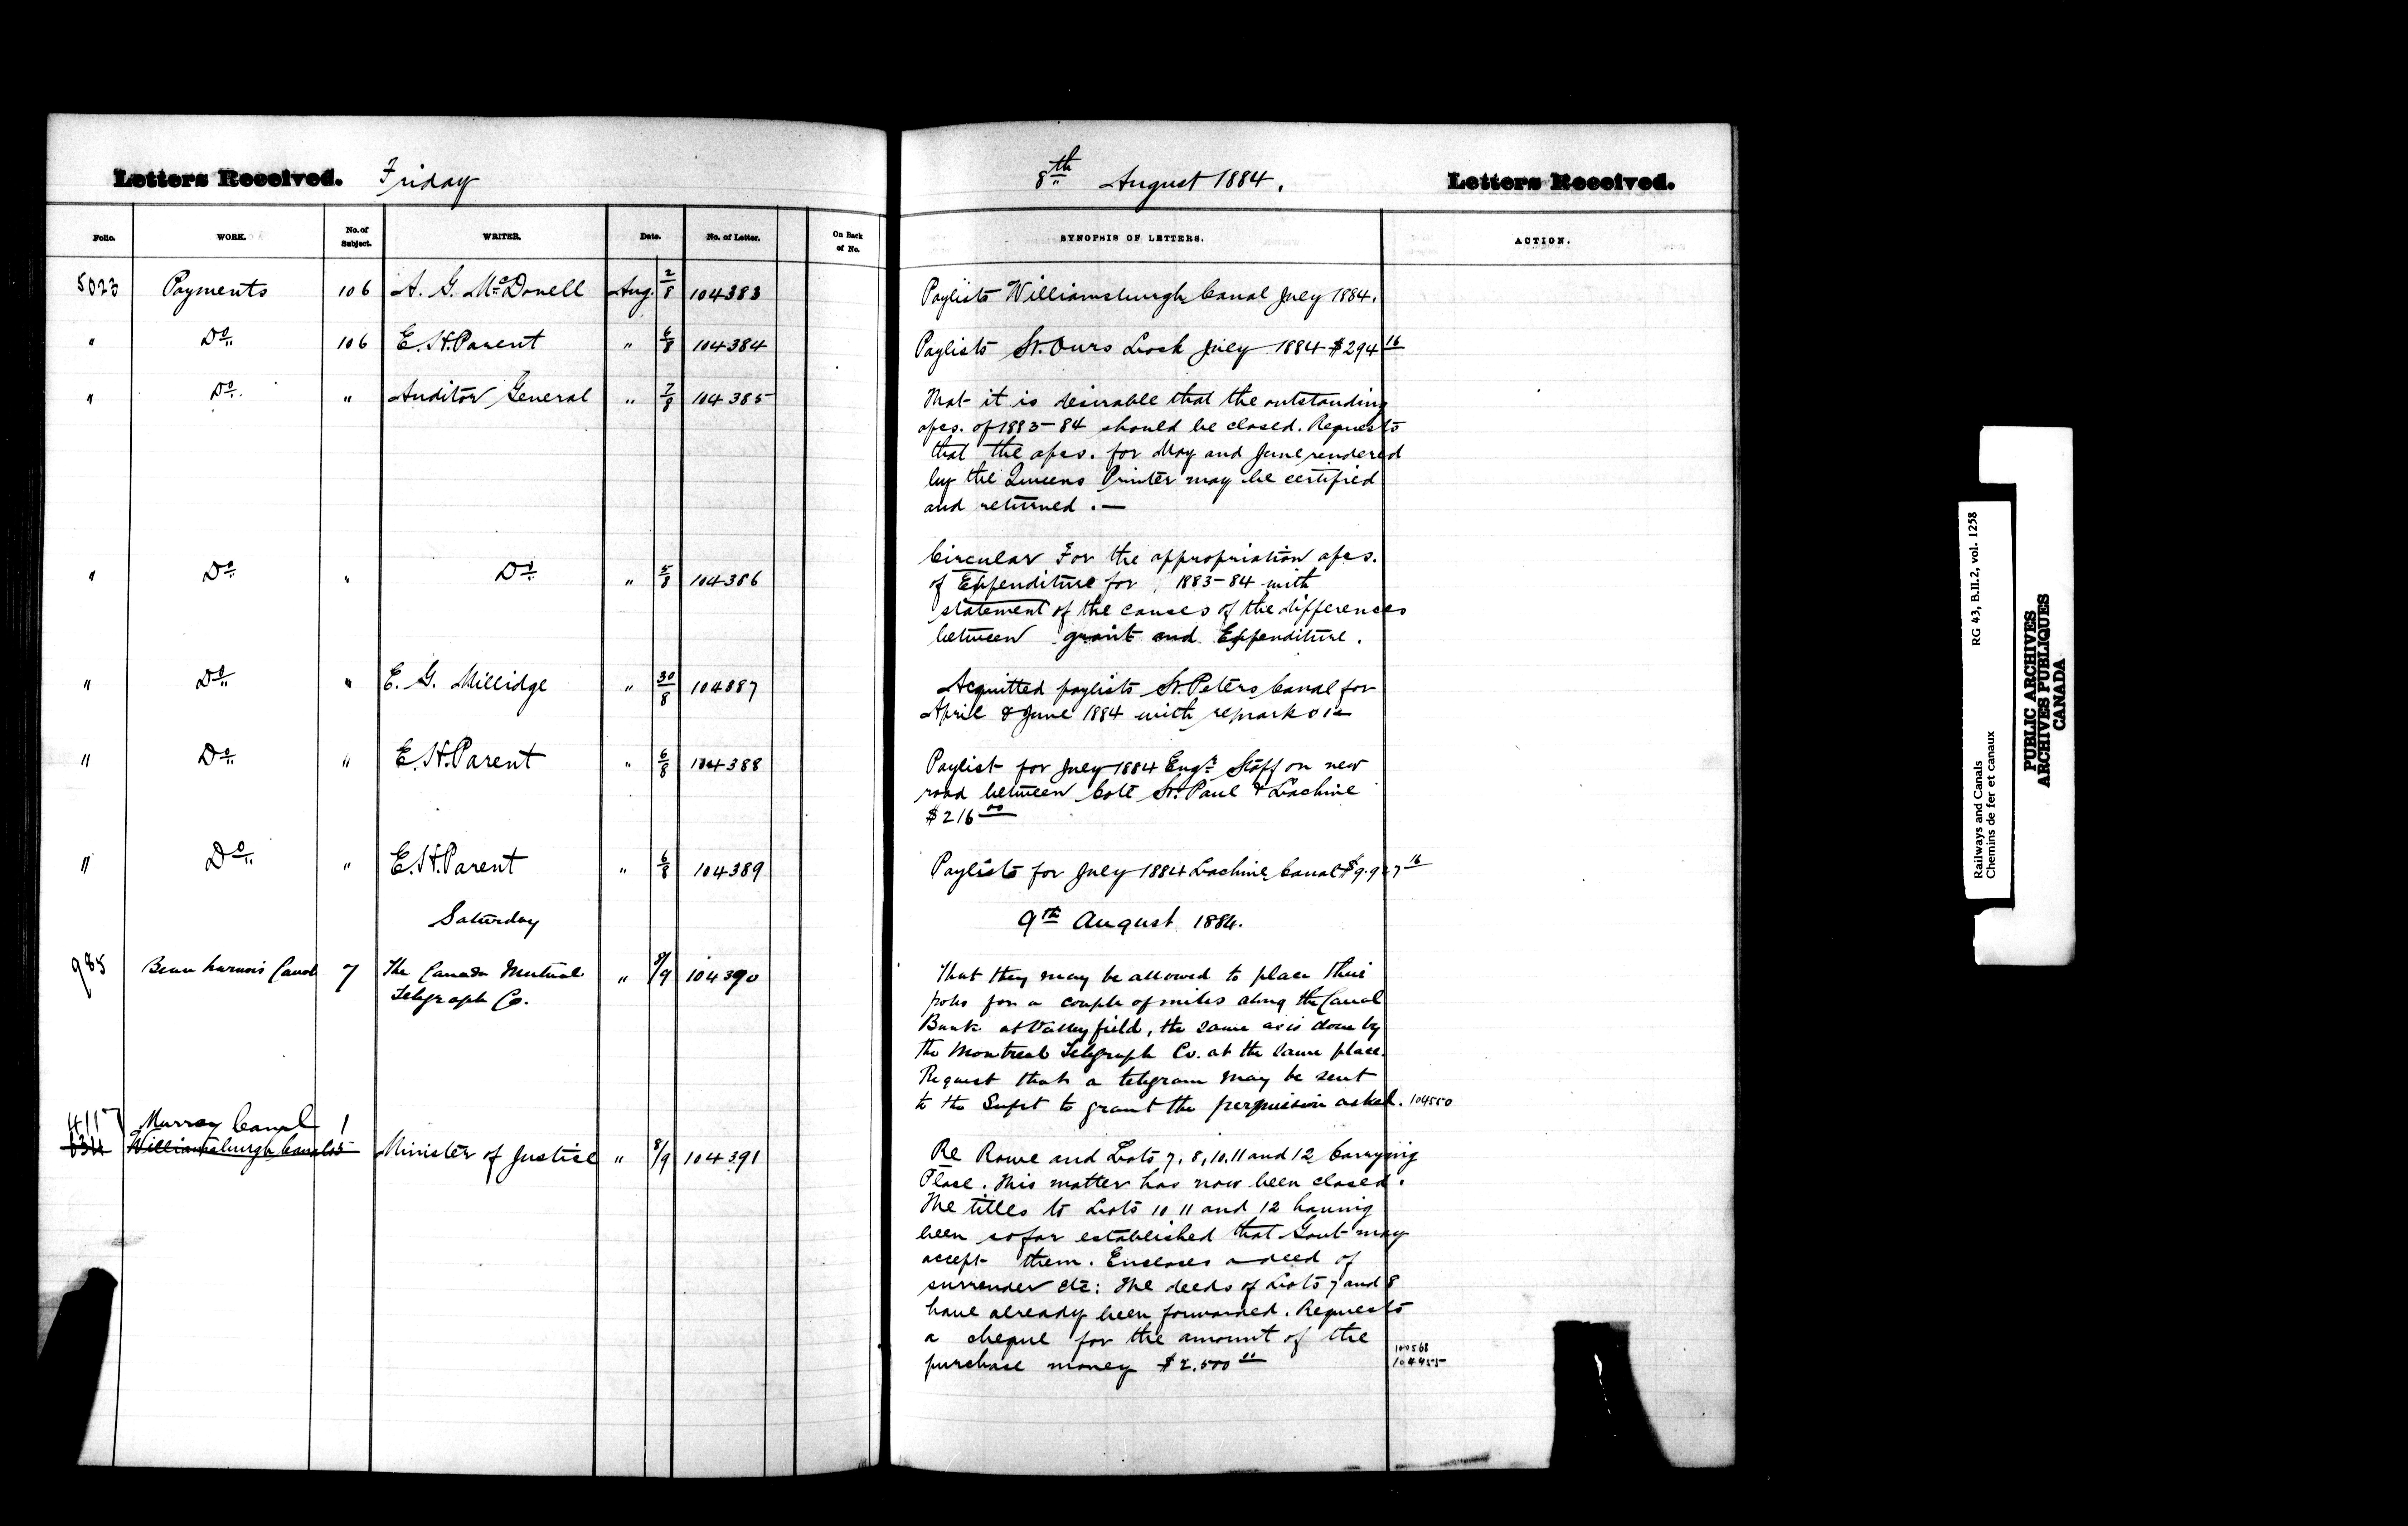 Letters Received. Friday
8th August 1884. Letters Received.
Folio. WORK. No. of Subject. WRITER. Date. No. of Letter. On Back of No. SYNOPSIS OF LETTERS. ACTION.
5023 Payments 106 A. G. McDonell Aug. 2/8 104383 Paylists Williamsburgh Canal July 1884.
" Do 106 E. H. Parent " 6/8 104384 Paylists St. Ours Lock July 1884 $294 16
" Do " Auditor General " 7/8 104385 That it is desirable that the outstanding
apcs. of 1883-84 should be closed. Requests
that the apcs. for May and June rendered
by the Queens Printer may be certified
and returned. —
" Do " Do " 5/8 104386 Circular For the appropriation apcs.
of Expenditure for 1883-84 with
statement of the causes of the differences
between grant and Expenditure.
" Do " E. G. Millidge " 30/8 104387 Acquitted paylists St. Peters Canal for
April & June 1884 with remarks
" Do " E. H. Parent " 6/8 104388 Paylist for July 1884 Engr. Staff on new
road between Cote St. Paul & Lachine
$216 00
" Do " E. H. Parent " 6/8 104389 Paylists for July 1884 Lachine Canal $9.927 16
Saturday 9th August 1884.
985 Beauharnois Canal 7 The Canada Mutual " 8/9 104390 That they may be allowed to place their
Telegraph Co. poles for a couple of miles along the Canal
Bank at Valleyfield, the same as is done by
the Montreal Telegraph Co. at the same place.
Request that a telegram may be sent
to the Supt to grant the permission asked. 104550
4117 Murray Canal 1
634 Williamsburgh Canal 25 Minister of Justice " 8/9 104391 Re Rowe and Lots 7, 8, 10, 11 and 12 Carrying
Place. This matter has now been closed.
The titles to Lots 10 11 and 12 having
been so far established that Govt may
accept them. Encloses a deed of
surrender etc: The deeds of Lots 7 and 8
have already been forwarded. Requests
a cheque for the amount of the
purchase money $2.500 00
100568
104455
Railways and Canals RG 43, B.III.2, vol. 1258
Chemins de fer et canaux
PUBLIC ARCHIVES
ARCHIVES PUBLIQUES
CANADA